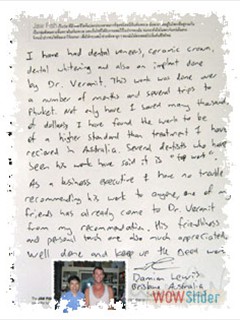 I have had dental veneers, ceramic crown,
dental whitening and also an implant done
by Dr. Vermit. This work was done over
a number of months and several trips to
Phuket. Not only have I saved many thousands
of dollars, I have found the work to be
of a higher standard than treatment I have
received in Australia. Several dentists who have
seen his work have said it is "top work".
As a business executive I have no trouble
recommending his work to anyone, one of my
friends has already come to Dr. Vermit
from my recommendation. His friendliness
and personal touch are also much appreciated
Well done and keep up the good work
Damian Lewis
Brisbane Australia
WOWSlider